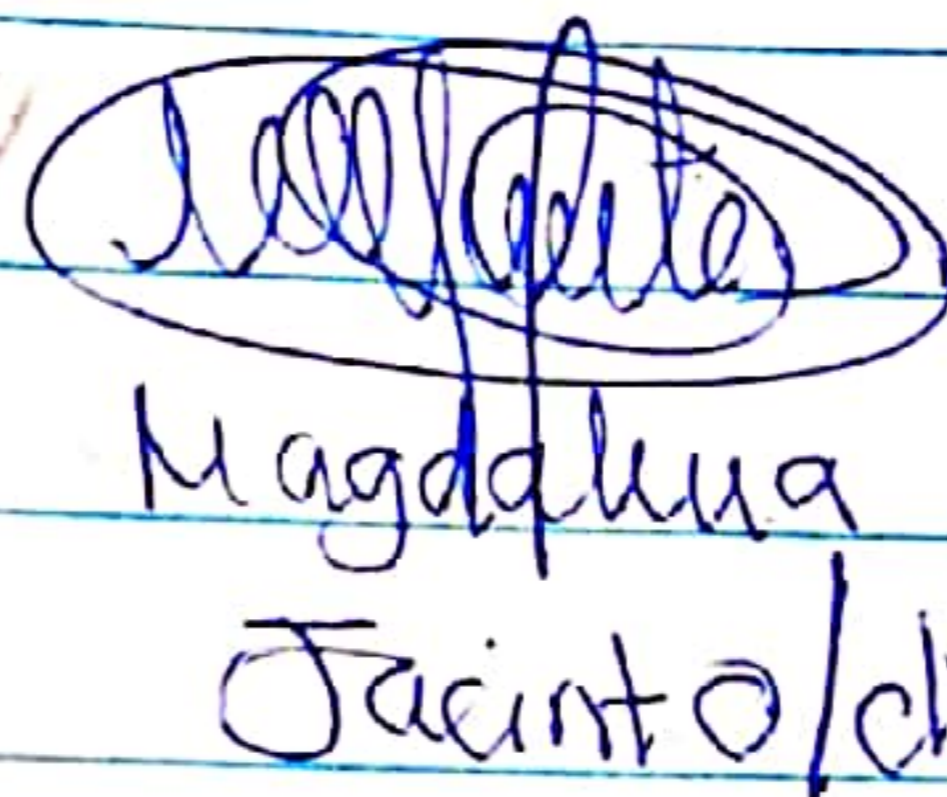 Magdalena
Jacinto/d